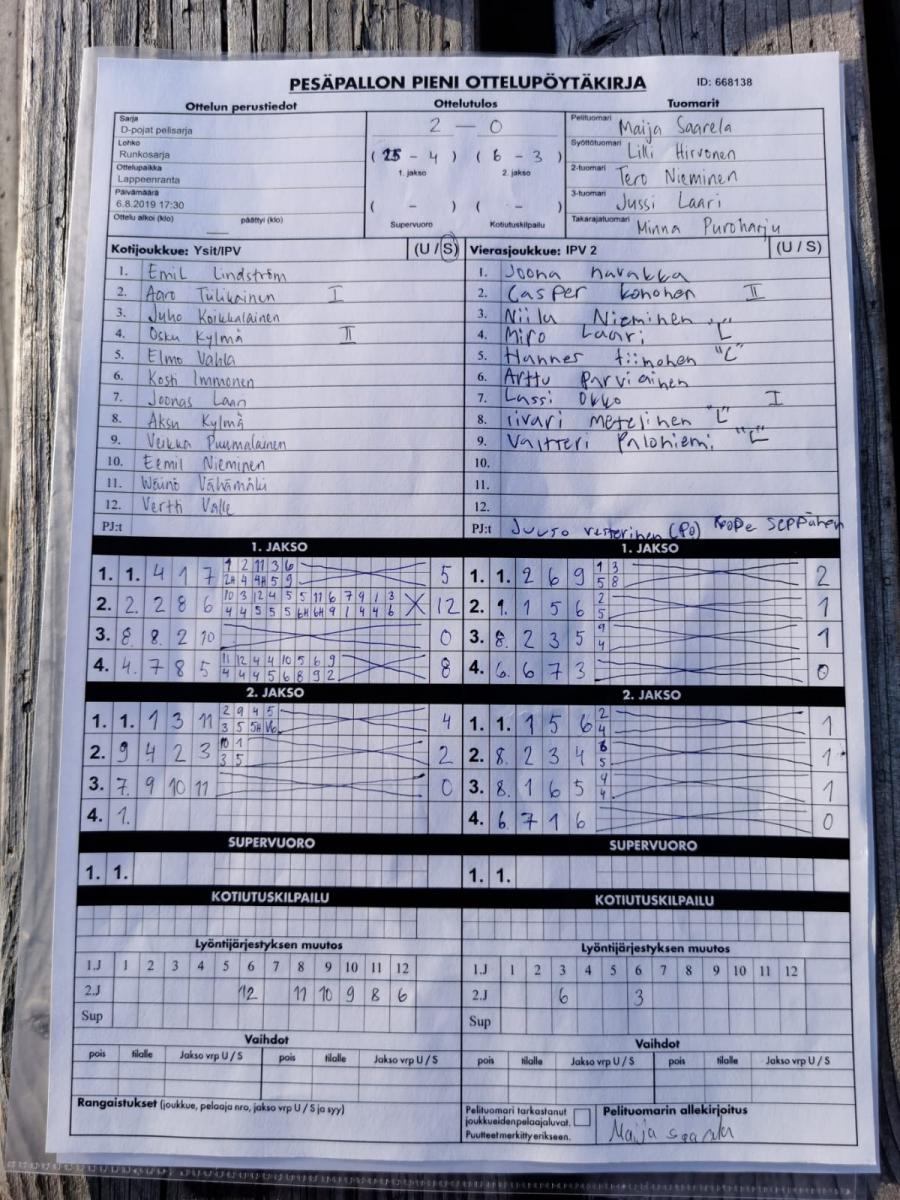 PESÄPALLON PIENI OTTELUPÖYTÄKIRJA ID: 668138
Ottelun perustiedot Ottelutulos Tuomarit
Sarja
D-pojat pelisarja
Lohko
Runkosarja
Ottelupaikka
Lappeenranta
Päivämäärä
6.8.2019 17:30
Ottelu alkoi (klo) päättyi (klo)
2 – 0
(25 - 4) (6 - 3)
1. jakso 2. jakso
( - ) ( - )
Supervuoro Kotiutuskilpailu
Pelituomari Maija Saarela
Syöttötuomari Lilli Hirvonen
2-tuomari Tero Nieminen
3-tuomari Jussi Laari
Takarajatuomari Minna Puroharju
Kotijoukkue: Ysit/IPV (U / S)
1. Emil Lindström
2. Aaro Tulikainen I
3. Juho Koikkalainen
4. Osku Kylmä II
5. Elmo Vahla
6. Kosti Immonen
7. Joonas Laari
8. Aksu Kylmä
9. Veikka Puumalainen
10. Eemil Nieminen
11. Wäinö Vähämäki
12. Vertti Valle
PJ:t
Vierasjoukkue: IPV 2 (U / S)
1. Joona navakka
2. Casper konohen II
3. Niilu Nieminen "L"
4. Miro Laari
5. Hannes tiinohen "L"
6. Arttu parviainen
7. Lassi Okko I
8. iivari metelinen "L"
9. Valtteri Palohiemi "L"
10.
11.
12.
PJ:t Juuso vesterinen (PO) Roope seppänen
1. JAKSO
1. 1. 4 1 7 1 2 11 3 6 5
2H 4 4H 5 9
2. 2. 2 8 6 10 3 12 4 5 5 11 6 7 9 1 3 X 12
4 4 5 5 5 6H 6H 9 1 4 4 6
3. 8. 8 2 10 0
4. 4. 7 8 5 11 12 4 4 10 5 6 9 8
4 4 4 5 6 8 9 2
1. JAKSO
1. 1. 2 6 9 1 3 2
5 8
2. 9. 1 5 6 2 1
5
3. 8. 2 3 5 9 1
4
4. 6. 6 7 3 0
2. JAKSO
1. 1. 1 3 11 2 9 4 5 4
3 5 5H
2. 9 4 2 3 10 1 2
3 5
3. 7. 9 10 11 0
4. 1.
2. JAKSO
1. 1. 1 5 6 2 1
4
2. 8. 2 3 4 6 1
5
3. 8. 1 6 5 4 1
4
4. 6. 7 1 6 0
SUPERVUORO
1. 1.
SUPERVUORO
1. 1.
KOTIUTUSKILPAILU
KOTIUTUSKILPAILU
Lyöntijärjestyksen muutos
1.J 1 2 3 4 5 6 7 8 9 10 11 12
2.J 12 11 10 9 8 6
Sup
Lyöntijärjestyksen muutos
1.J 1 2 3 4 5 6 7 8 9 10 11 12
2.J 6 3
Sup
Vaihdot
pois tilalle Jakso vrp U / S pois tilalle Jakso vrp U / S
Vaihdot
pois tilalle Jakso vrp U / S pois tilalle Jakso vrp U / S
Rangaistukset (joukkue, pelaaja nro, jakso vrp U / S ja syy)
Pelituomari tarkastanut
joukkueidenpelaajaluvat.
Puutteet merkitty erikseen.
Pelituomarin allekirjoitus
Maija Saarela